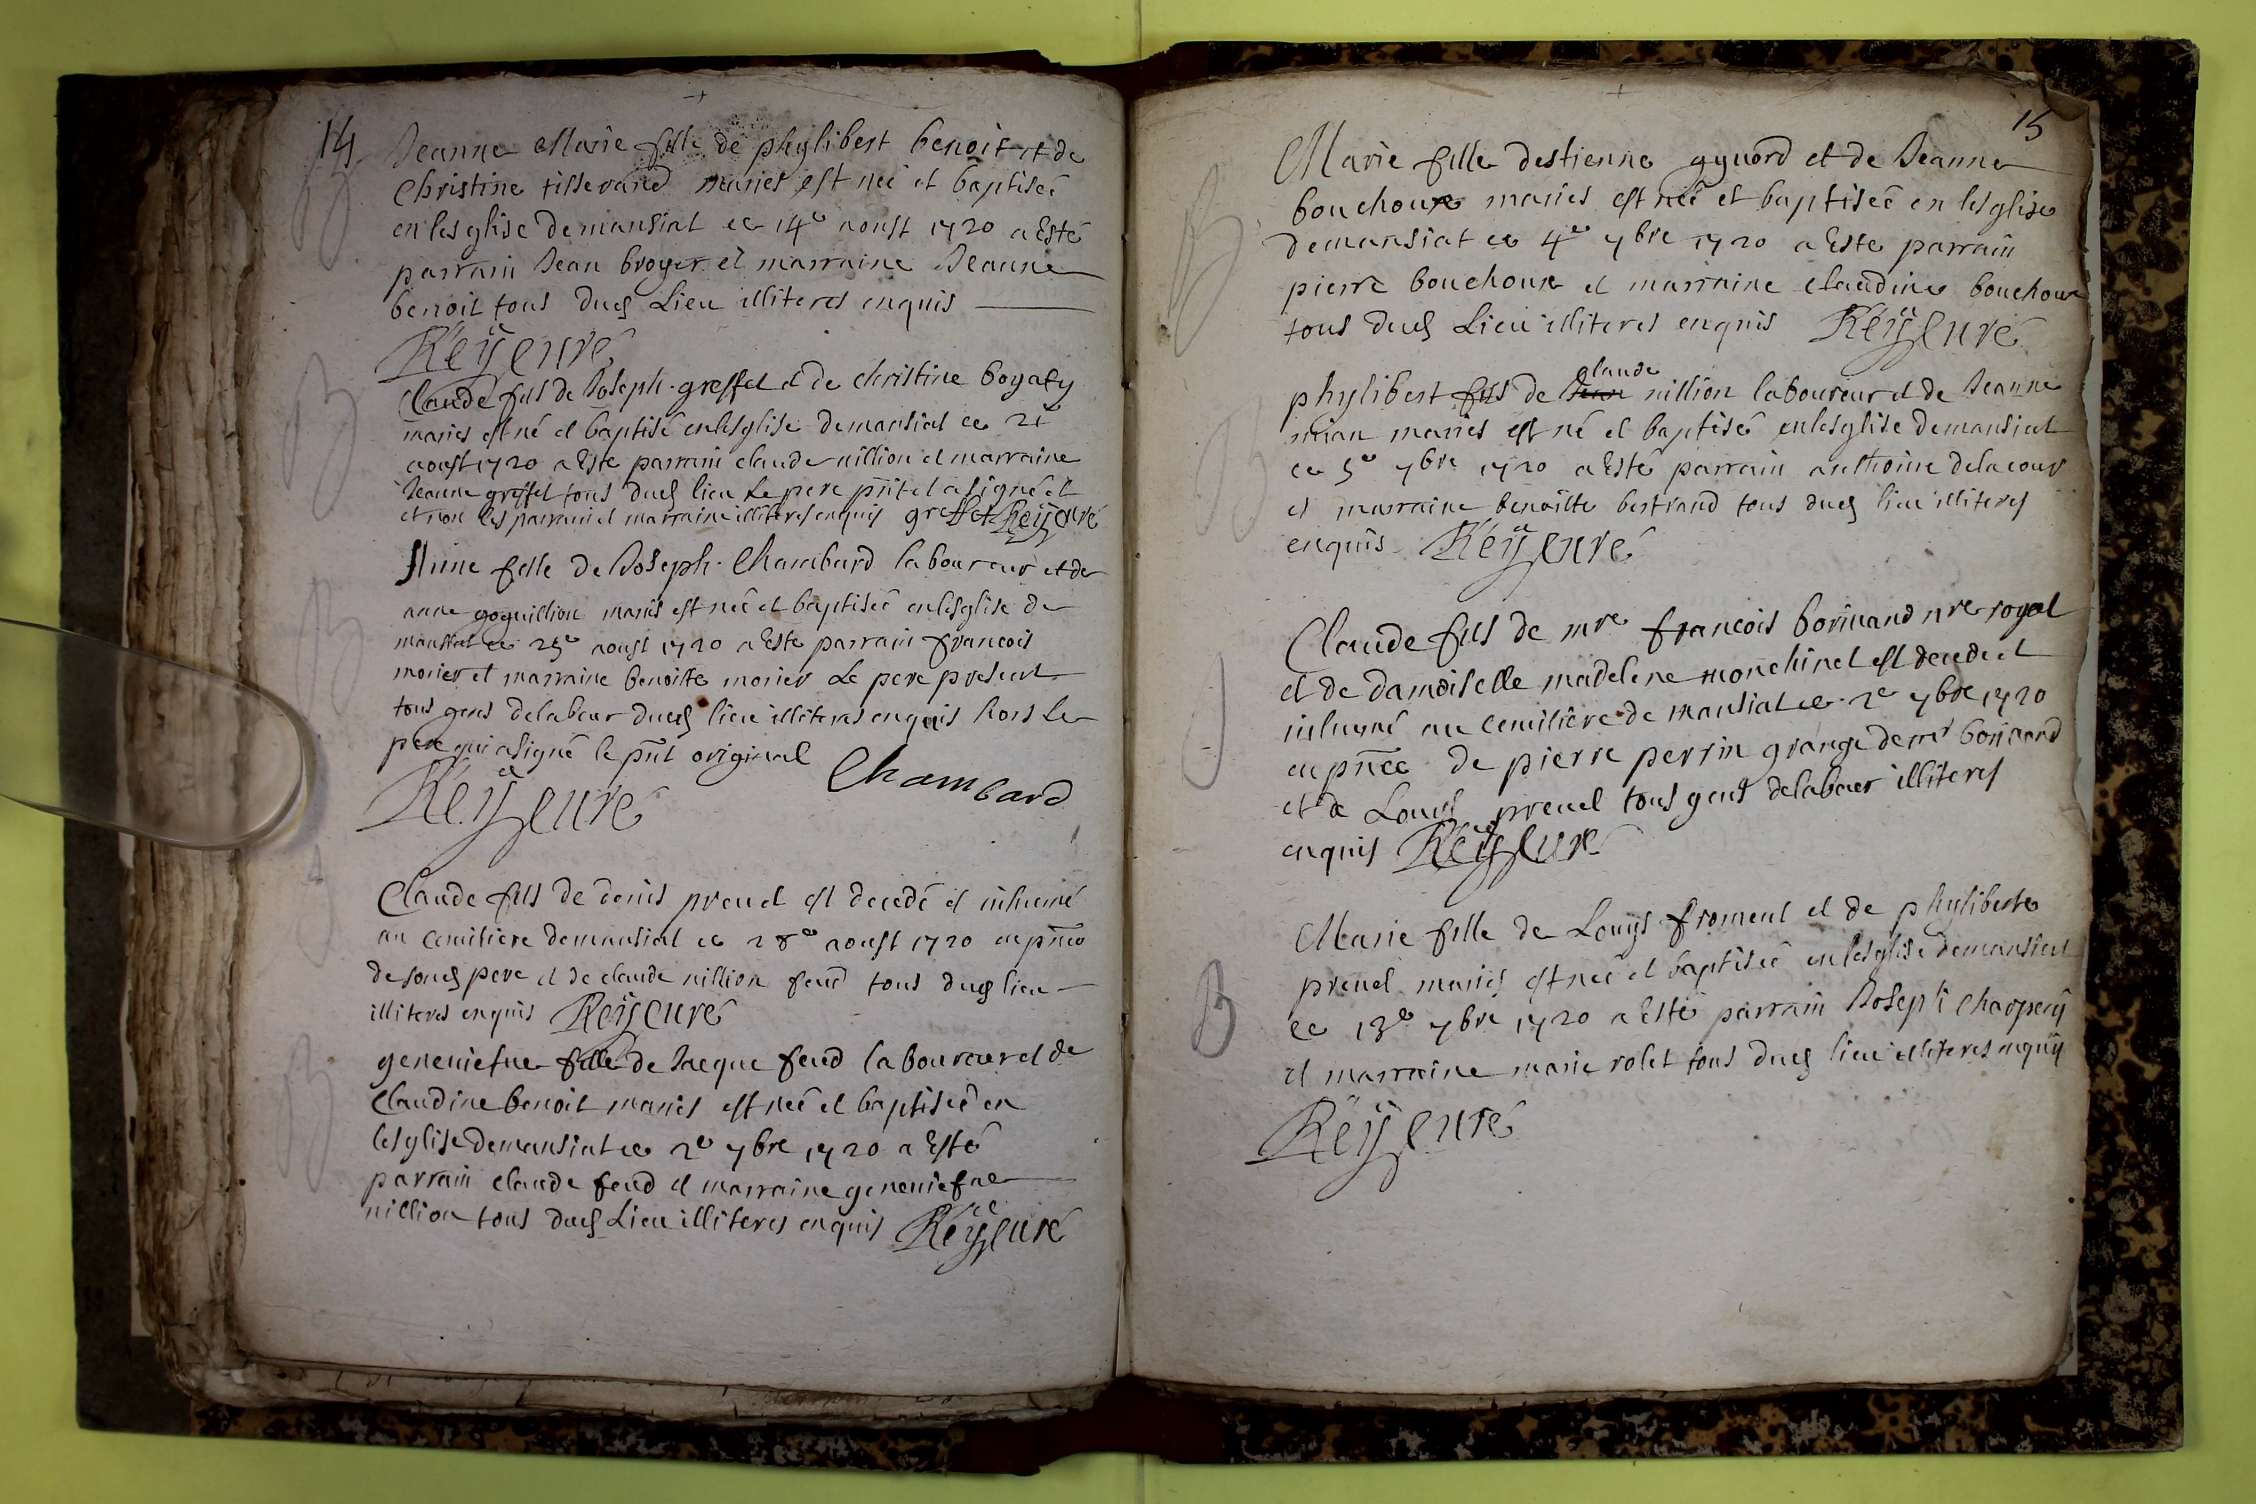 14
Jeanne Marie fille de phylibert benoit et de
Christine tisserand maries est neé et baptiseé
en lesglise demansiat ce 14e aoust 1720 a Esté
parrain Jean broyer et marraine Jeanne
benoit tous dud lieu illiteres enquis
Réÿ curé
Claude fils de Joseph greffet et de christine
maries est né et baptisé enlesglise demansiat ce
aoust 1720 a Este parrain claude nillion et marraine
Jeanne greffet tous dud lieu Le pere pnt et a signé et
et non les parrain et marraine illiteres enquis greffet Réÿ curé
Anne fille de Joseph Chambard laboureur et de
anne goguillion maries est neé et baptiseé enlesglise de
mansiat ce 25e aoust 1720 a Este parrain francois
morier et marraine benoitte morier Le pere present
tous gens delabeur dud lieu illiteres enquis hors Le
pere qui a signé le pnt original Chambard
Réÿ curé
Claude fils de denis preuel est decedé et inhumé
au cemitiere demansiat ce 28e aoust 1720 en pnce
de soud pere et de claude nillion feud tous dud lieu
illiteres enquis Réÿ curé
geneuiefue fille de Jacque feud laboureur et de
Claudine benoit maries est neé et baptiseé en
lesglise demansiat ce 2e 7bre 1720 a Esté
parrain claude feud et marraine geneuiefue
nillion tous dud Lieu illiteres enquis Réÿ curé
15
Marie fille destienne gyuord et de Jeanne
bouchoux maries est neé et baptiseé en lesglise
demansiat ce 4e 7bre 1720 a Este parrain
pierre bouchoux et marraine claudine bouchoux
tous dud Lieu illiteres enquis Réÿ curé
claude
phylibert fils de nillion laboureur et de Jeanne
maries est né et baptisé enlesglise demansiat
ce 5e 7bre 1720 a Esté parrain anthoine delacour
et marraine benoitte bertrand tous dud lieu illiteres
enquis Réÿ curé
Claude fils de mre francois borjnand nre royal
et de damoiselle madelene monchinet est decede et
inhumé au cemitiere de mansiat ce 2e 7bre 1720
en pnce de pierre perrin granger de mr
et de Louys preuel tous gens delabeur illiteres
enquis Réÿ curé
Marie fille de Louys froment et de phyliberte
preuel maries est neé et baptiseé enlesglise demansiat
ce 13e 7bre 1720 a Esté parrain Joseph charpeÿ
et marraine marie rolet tous dud lieu illiteres enquis
Réÿ curé